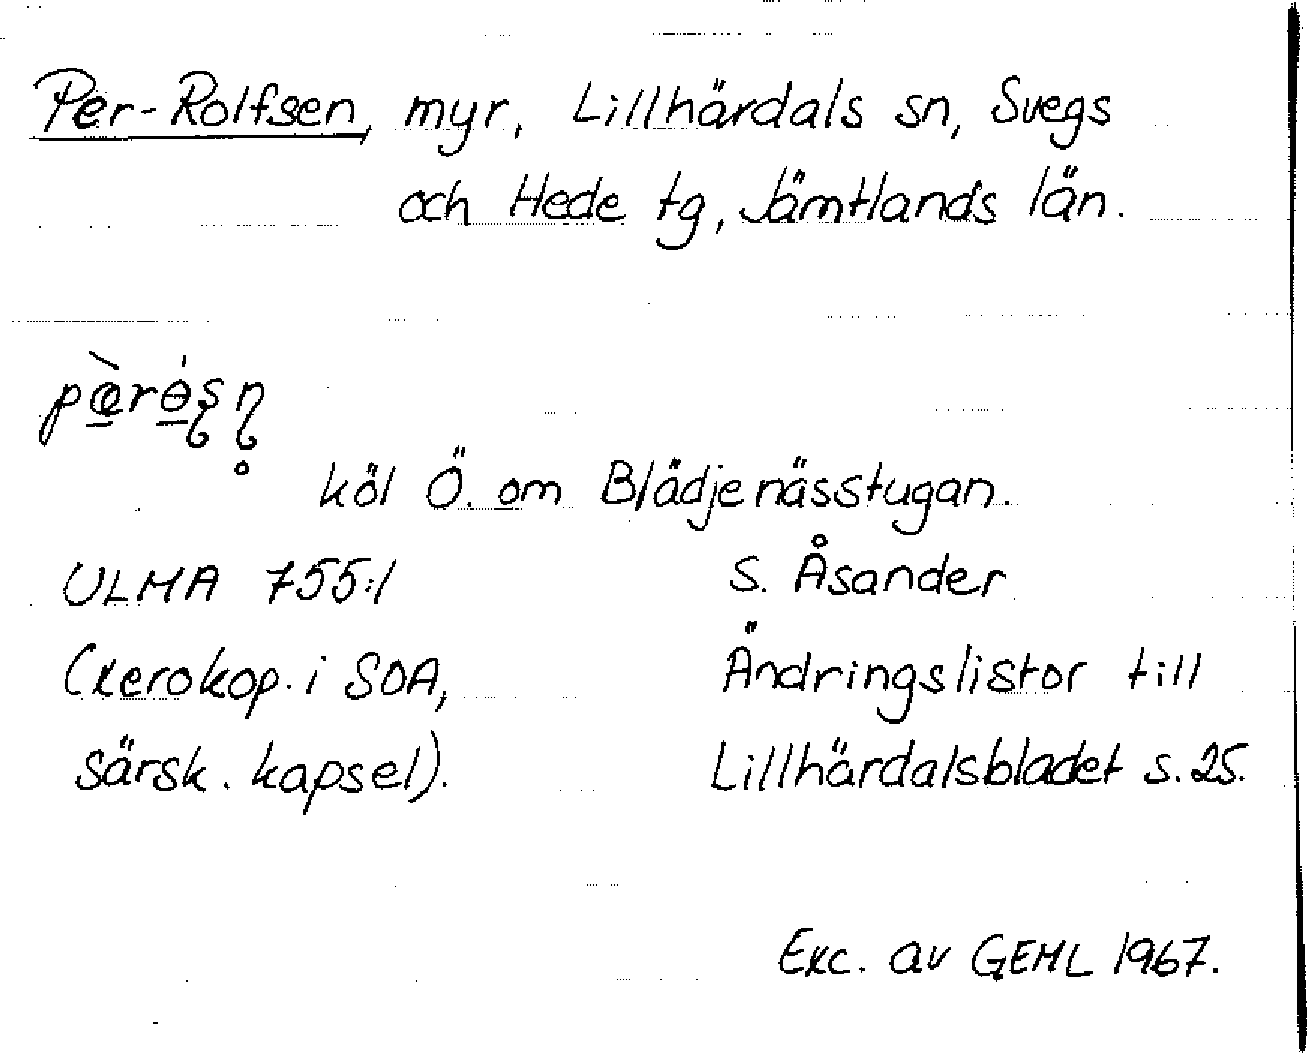 Per-Rolfsen, myr, Lillhärdals sn, Svegs
och Hede tg, Jämtlands län.
köl Ö. om Blädjenässtugan.
ULMA 755:1 S. Åsander
(xerokop. i SOA, Ändringslistor till
särsk. kapsel). Lillhärdalsbladet s. 25.
Exc. av GEHL 1967.